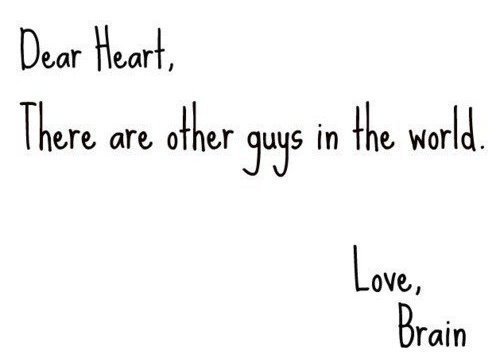 Dear Heart,
There are other guys in the world.
Love,
Brain